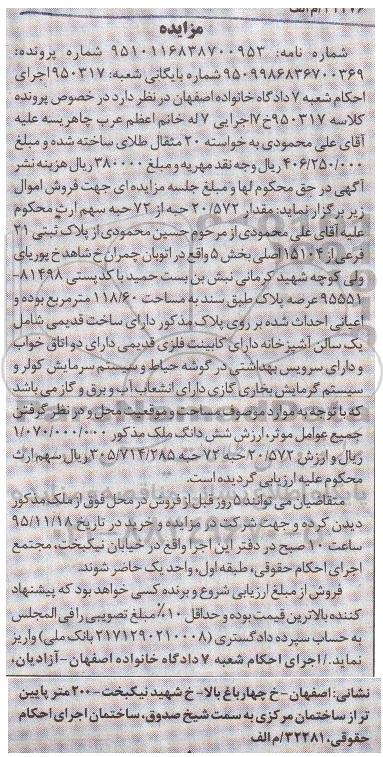 مزایده
شماره نامه: ۹۵۱۰۱۱۶۸۳۸۷۰۰۹۵۳ شماره پرونده:
۹۵۰۹۹۸۶۸۳۶۷۰۰۳۶۹ شماره بایگانی شعبه: ۹۵۰۳۱۷ اجرای
احکام شعبه ۷ دادگاه خانواده اصفهان در نظر دارد در خصوص پرونده
کلاسه ۹۵۰۳۱۷ خ ۷ اجرایی ۷ له خانم اعظم عرب چاهریسه علیه
آقای علی محمودی به خواسته ۲۰ مثقال طلای ساخته شده و مبلغ
۴۰۶/۲۵۰/۰۰۰ ریال وجه نقد مهریه و مبلغ ۳۸۰۰۰۰ ریال هزینه نشر
آگهی در حق محکوم لها و مبلغ جلسه مزایده ای جهت فروش اموال
زیر برگزار نماید: مقدار ۲۰/۵۷۲ حبه از ۷۲ حبه سهم ارث محکوم
علیه آقای علی محمودی از مرحوم حسین محمودی از پلاک ثبتی ۲۱
فرعی از ۱۵۱۰۴ اصلی بخش ۵ واقع در اتوبان چمران خ شاهد خ پوریای
ولی کوچه شهید کرمانی نبش بن بست حمید با کدپستی ۸۱۴۹۸-
۹۵۵۵۱ عرصه پلاک طبق سند به مساحت ۱۱۸/۶۰ مترمربع بوده و
اعیانی احداث شده بر روی پلاک مذکور دارای ساخت قدیمی شامل
یک سالن آشپزخانه دارای کابینت فلزی قدیمی دارای دو اتاق خواب
و دارای سرویس بهداشتی در گوشه حیاط و سیستم سرمایش کولر و
سیستم گرمایش بخاری گازی دارای انشعاب آب و برق و گاز می باشد
که با توجه به موارد موصوف مساحت و موقعیت محل و در نظر گرفتن
جمیع عوامل موثر، ارزش شش دانگ ملک مذکور ۱/۰۷۰/۰۰۰/۰۰۰
ریال و ارزش ۲۰/۵۷۲ حبه ۷۲ حبه ۳۰۵/۷۱۴/۲۸۵ ریال سهم ارث
محکوم علیه ارزیابی گردیده است.
متقاضیان می توانند ۵ روز قبل از فروش در محل فوق از ملک مذکور
دیدن کرده و جهت شرکت در مزایده و خرید در تاریخ ۹۵/۱۱/۱۸
ساعت ۱۰ صبح در دفتر این اجرا واقع در خیابان نیکبخت، مجتمع
اجرای احکام حقوقی، طبقه اول، واحد یک حاضر شوند.
فروش از مبلغ ارزیابی شروع و برنده کسی خواهد بود که پیشنهاد
کننده بالاترین قیمت بوده و حداقل ۱۰٪ مبلغ تصویبی را فی المجلس
به حساب سپرده دادگستری (۲۱۷۱۲۹۰۲۱۰۰۰۸ بانک ملی) واریز
نماید. / اجرای احکام شعبه ۷ دادگاه خانواده اصفهان - آزادیان،
نشانی: اصفهان - خ چهارباغ بالا - خ شهید نیکبخت - ۲۰۰ متر پایین
تر از ساختمان مرکزی به سمت شیخ صدوق، ساختمان اجرای احکام
حقوقی، ۳۲۲۸۱/م الف